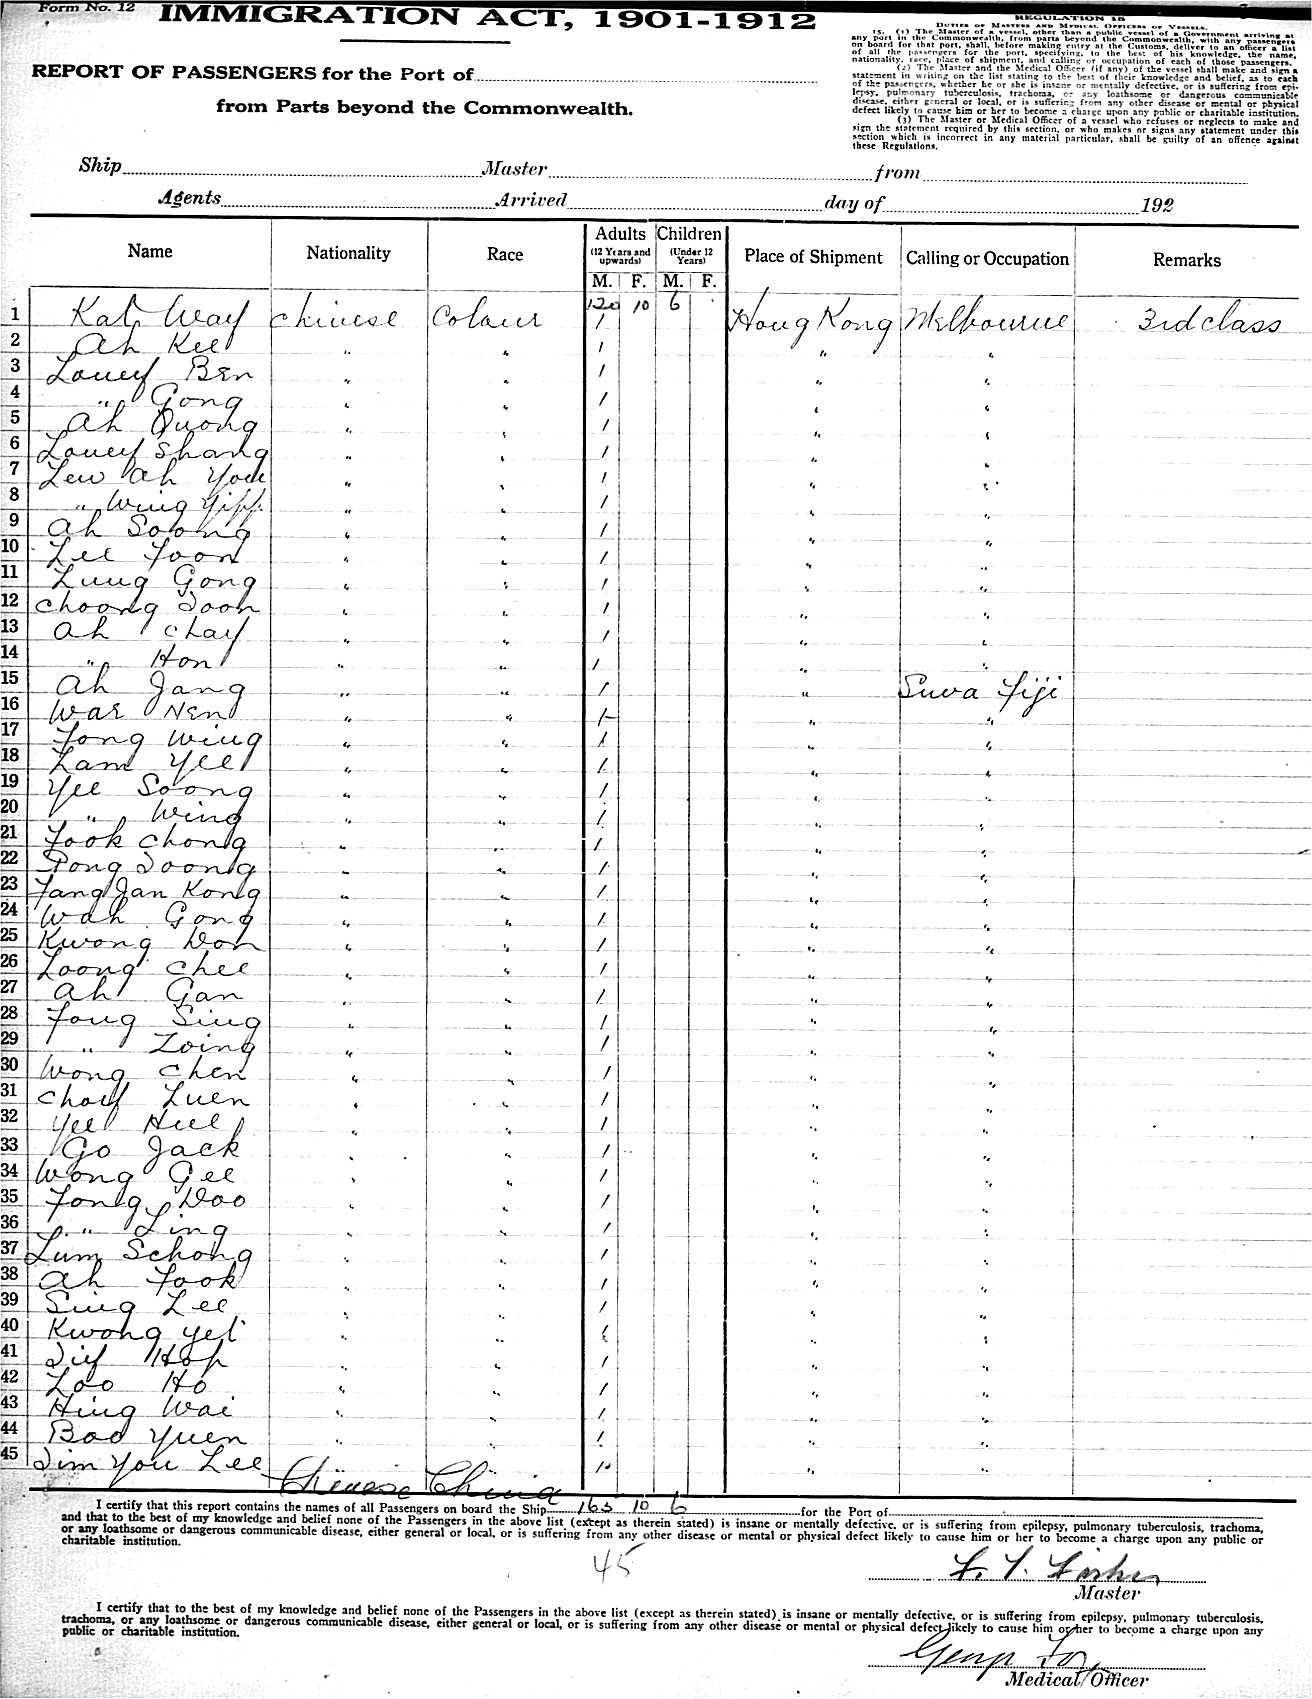 Form No. 12
IMMIGRATION ACT, 1901-1912
REPORT OF PASSENGERS for the Port of
from Parts beyond the Commonwealth.
REGULATION 15
DUTIES OF MASTERS AND MEDICAL OFFICERS OF VESSELS.
15. (1) The Master of a vessel, other than a public vessel of a Government arriving at
any port in the Commonwealth, from parts beyond the Commonwealth, with any passengers
on board for that port, shall, before making entry at the Customs, deliver to an officer a list
of all the passengers for the port, specifying, to the best of his knowledge, the name,
nationality, race, place of shipment, and calling or occupation of each of those passengers.
(2) The Master and the Medical Officer (if any) of the vessel shall make and sign a
statement in writing on the list stating to the best of their knowledge and belief, as to each
of the passengers, whether he or she is insane or mentally defective, or is suffering from epi-
lepsy, pulmonary tuberculosis, trachoma, or any loathsome or dangerous communicable
disease, either general or local, or is suffering from any other disease or mental or physical
defect likely to cause him or her to become a charge upon any public or charitable institution.
(3) The Master or Medical Officer of a vessel who refuses or neglects to make and
sign the statement required by this section, or who makes or signs any statement under this
section which is incorrect in any material particular, shall be guilty of an offence against
these Regulations.
Ship Master from
Agents Arrived day of 192
Name Nationality Race Adults (12 Years and upwards) M. F. Children (Under 12 Years) M. F. Place of Shipment Calling or Occupation Remarks
120 10 6
1 Kat Way Chinese Colour 1 Hong Kong Melbourne 3rd class
2 Ah Kee " " 1 " "
3 Louey Ben " " 1 " "
4 " Gong " " 1 " "
5 Ah Quong " " 1 " "
6 Louey Shang " " 1 " "
7 Lew Ah You " " 1 " "
8 " Wing Yipp " " 1 " "
9 Ah Soong " " 1 " "
10 Lee Foon " " 1 " "
11 Lung Gong " " 1 " "
12 Choong Soon " " 1 " "
13 Ah Chay " " 1 " "
14 " Hon " " 1 " "
15 Ah Jang " " 1 " Suva Fiji
16 War Nen " " 1 " "
17 Fong Wing " " 1 " "
18 Lam Yee " " 1 " "
19 Yee Soong " " 1 " "
20 " Wing " " 1 " "
21 Fook Chong " " 1 " "
22 Pong Soong " " 1 " "
23 Fang Jan Kong " " 1 " "
24 Wah Gong " " 1 " "
25 Kwong Don " " 1 " "
26 Loong Chee " " 1 " "
27 Ah Gan " " 1 " "
28 Fong Sing " " 1 " "
29 " Loing " " 1 " "
30 Wong Chen " " 1 " "
31 Choy Luen " " 1 " "
32 Yee Huel " " 1 " "
33 Go Jack " " 1 " "
34 Wong Gee " " 1 " "
35 Fong Doo " " 1 " "
36 " Ling " " 1 " "
37 Lum Schong " " 1 " "
38 Ah Fook " " 1 " "
39 Sing Lee " " 1 " "
40 Kwong Yet " " 1 " "
41 Hop " " 1 " "
42 Loo Ho " " 1 " "
43 Hing Wai " " 1 " "
44 Boo Yuen " " 1 " "
45 Jim You Lee 1 " "
Chinese China
I certify that this report contains the names of all Passengers on board the Ship 165 10 6 for the Port of
and that to the best of my knowledge and belief none of the Passengers in the above list (except as therein stated) is insane or mentally defective, or is suffering from epilepsy, pulmonary tuberculosis, trachoma,
or any loathsome or dangerous communicable disease, either general or local, or is suffering from any other disease or mental or physical defect likely to cause him or her to become a charge upon any public or
charitable institution.
45
Master
I certify that to the best of my knowledge and belief none of the Passengers in the above list (except as therein stated) is insane or mentally defective, or is suffering from epilepsy, pulmonary tuberculosis,
trachoma, or any loathsome or dangerous communicable disease, either general or local, or is suffering from any other disease or mental or physical defect likely to cause him or her to become a charge upon any
public or charitable institution.
Medical Officer